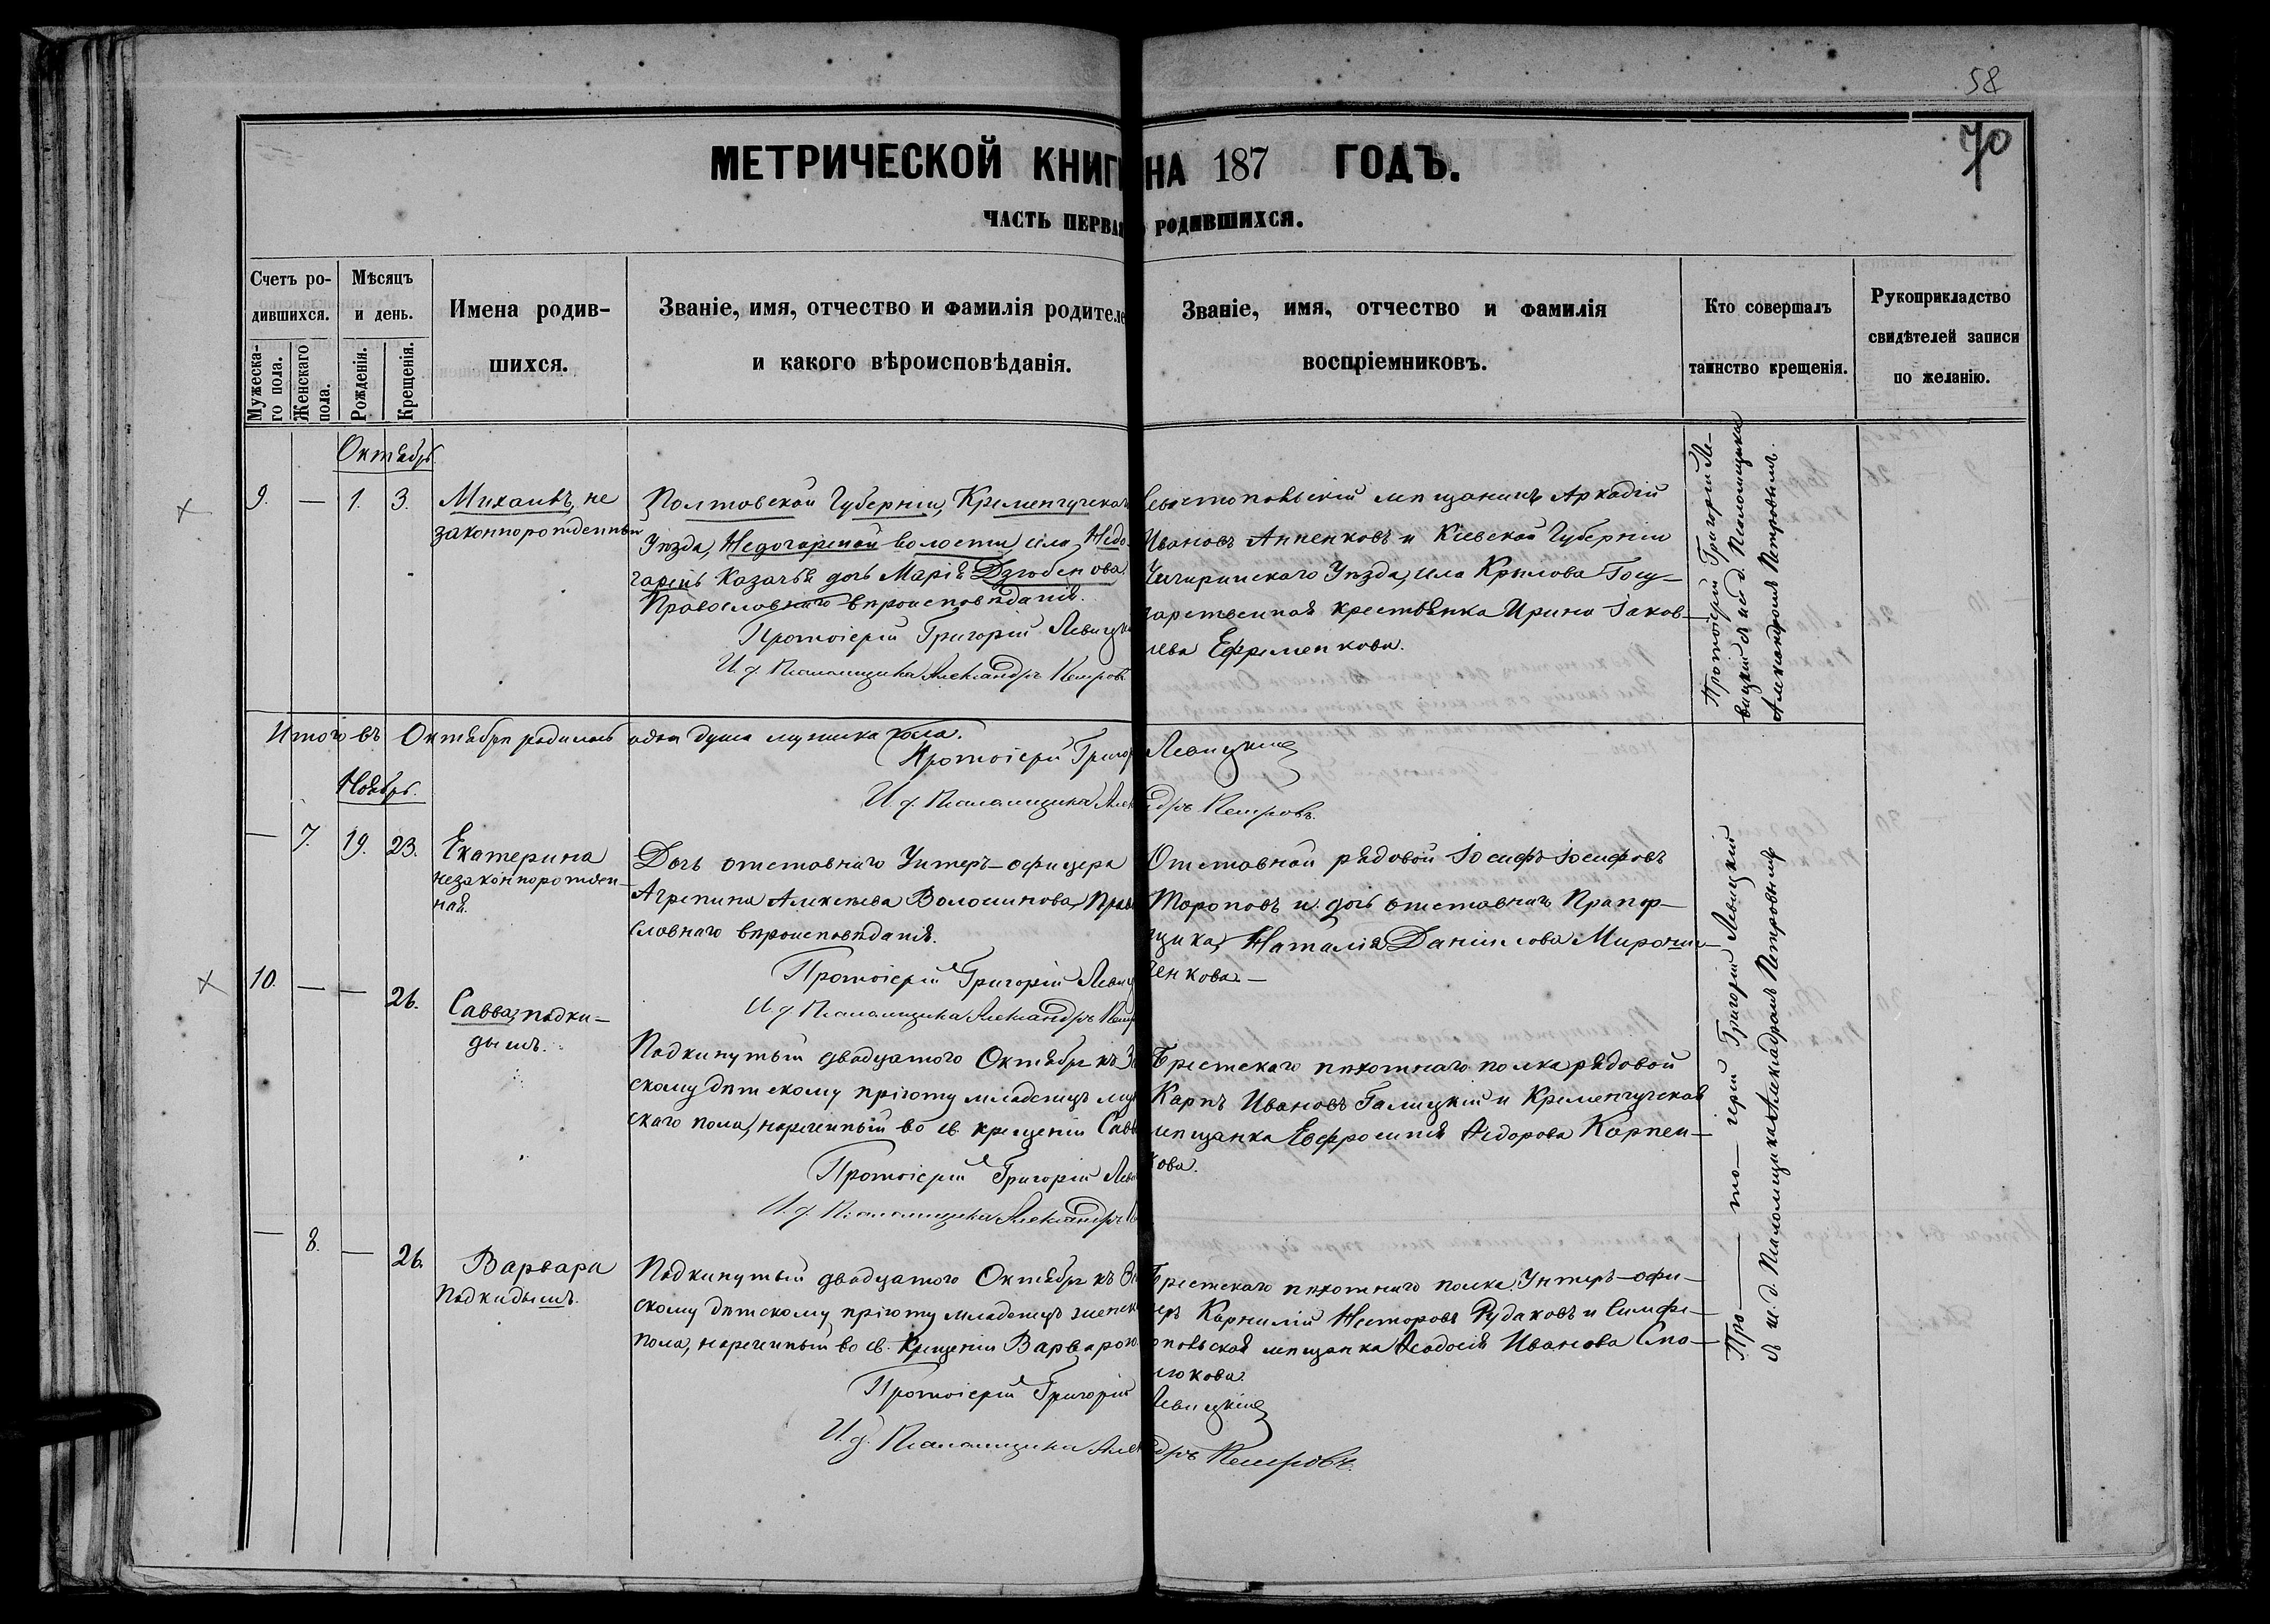 58
70
МЕТРИЧЕСКОЙ КНИГ НА 187 ГОДЪ.
ЧАСТЬ ПЕРВАЯ РОДИВШИХСЯ.
Счетъ ро-
дившихся.
Мужеска-
го пола.
Женскаго
пола.
Мѣсяцъ
и день.
Рожденія.
Крещенія.
Имена родив-
шихся.
Званіе, имя, отчество и фамилія родителе
и какого вѣроисповѣданія.
Званіе, имя, отчество и фамилія
воспріемниковъ.
Кто совершалъ
таинство крещенія.
Рукоприкладство
свидѣтелей записи
по желанію.
Октябрь.
9. — 1. 3.
Михаилъ, не
законнорожденный
Полтовской Губерніи, Кременчугска
Уѣзда, Недогарской волости, села Недо
гарокъ Казачья дочь Марія Дзюбенова
Православнаго вѣроисповѣданія.
Протоіерей Григорій Левицк
И д. Псаломщика Александръ Петровъ
мѣщанинъ Аркадій
Ивановъ Анненковъ и Кіевской Губерніи
Чигиринскаго Уѣзда, села Крылова Госу-
дарственная крестьянка Ирина Яков-
лева Ефременкова.
Протоіерей Григорій Ле-
вицкій съ и. д. Псаломщика
Александромъ Петровымъ.
Итого въ Октябрѣ родилась одна душа мужска пола.
Протоіерей Григор Левицкій
И д. Псаломщика Алек дръ Петровъ.
Ноябрь.
— 7. 19. 23.
Екатерина
незаконнорожден-
ная.
Дочь отставнаго Унтеръ-офицера
Агрепина Алексѣева Волошинова, Прав
славнаго вѣроисповѣданія.
Протоіерей Григорій Левиц
И д Псаломщика Александръ Петр
Отставной рядовой Іосифъ Іосифовъ
Тороповъ и дочь отставнаго Прапор-
щика, Наталія Даніилова Мирошни-
ченкова.—
10. — — 26.
Савва, подки-
дышъ.
Подкинутый двадцатого Октября къ
скому дѣтскому пріюту младенецъ муж
скаго пола, нареченный во св. крещеніи Савв
Протоіерей Григорій Лев
И. д. Псаломщика Александръ
Брестскаго пѣхотнаго полка рядовой
Карпъ Ивановъ Галицкій и Кременчугская
мѣщанка Евфросинія Ѳедорова Карпен-
кова.
— 8. — 26.
Варвара
Подкидышъ.
Подкинутый двадцатого Октября къ
скому дѣтскому пріюту младенецъ женск
пола, нареченный во св. Крещеніи Варварою.
Протоіерей Григорій Левицкій
И. д. Псаломщика Алек дръ Петровъ.
Брестскаго пѣхотнаго полка Унтеръ-офи-
церъ Корнилій Несторовъ Рудаковъ и Симфе-
ропольская мѣщанка Ѳеодосія Иванова Смо-
люкова.
Про — то — іерей Григорій Левицкій
съ и. д. Псаломщика Александромъ Петровымъ